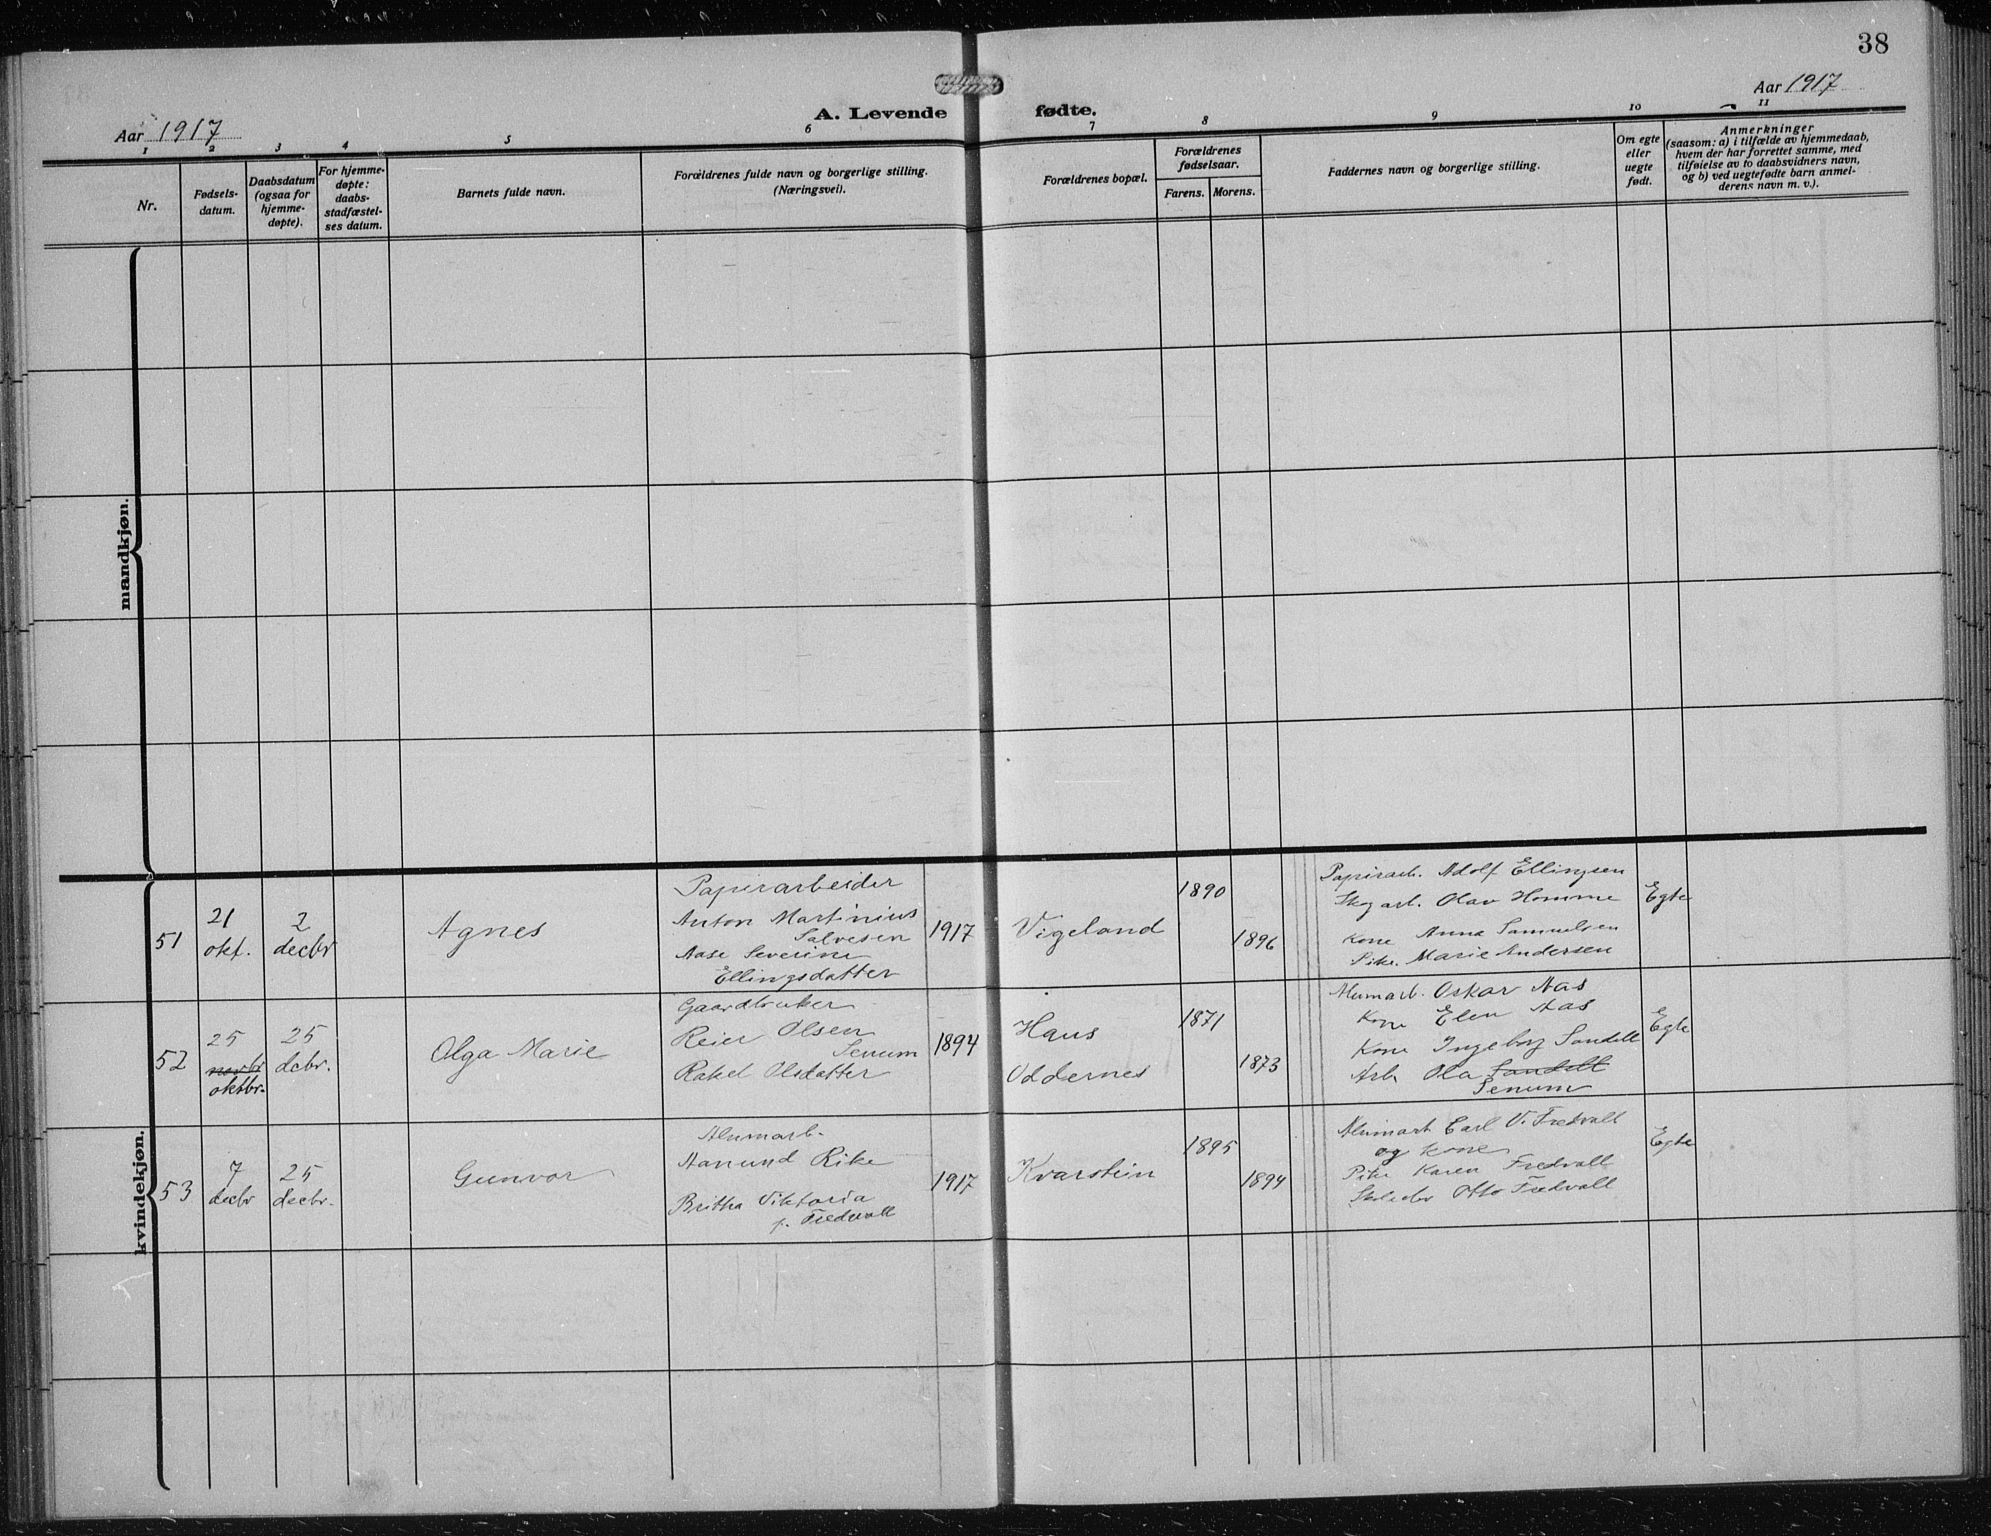 38
Aar 1917
A. Levende fødte.
Aar 1917
1 2 3 4 5 6 7 8 9 10 11
Nr.
Fødsels-
datum.
Daabsdatum
(ogsaa for
hjemme-
døpte).
For hjemme-
døpte:
daabs-
stadfæstel-
ses datum.
Barnets fulde navn.
Forældrenes fulde navn og borgerlige stilling.
(Næringsvei).
Forældrenes bopæl.
Forældrenes
fødselsaar.
Farens. Morens.
Faddernes navn og borgerlige stilling.
Om egte
eller
uegte
født.
Anmerkninger
(saasom: a) i tilfælde av hjemmedaab,
hvem der har forrettet samme, med
tilføielse av to daabsvidners navn,
og b) ved uegtefødte barn anmel-
derens navn m. v.).
mandkjøn.
kvindekjøn.
51
21
okt.
2
decbr
Agnes
Papirarbeider
Anton Martinius
Salvesen
Aase Severine
Ellingsdatter
1917
Vigeland
1890
1896
Papirarb. Adolf Ellingsen
Skogarb. Olav Homme
Kone Anna Samuelsen
Pike. Marie Andersen
Egte
52
25
novbr
oktbr.
25
dcbr.
Olga Marie
Gaardbruker
Reier Olsen
Senum
Rakel Olsdatter
1894
Haus
Oddernes
1871
1873
Alumarb. Oskar Aas
Kone Elen Aas
Kone Ingeborg Sandell
Arb. Ola Sandell
Senum
Egte
53
7
decbr
25
decbr.
Gunvor
Alumarb.
Aanund Rike
Britha Viktoria
f. Fredvall
1917
Kvarstein
1895
1894
Alumarb Carl V. Fredvall
og kone
Pike Karen Fredvall
Otto Fredvall
Egte